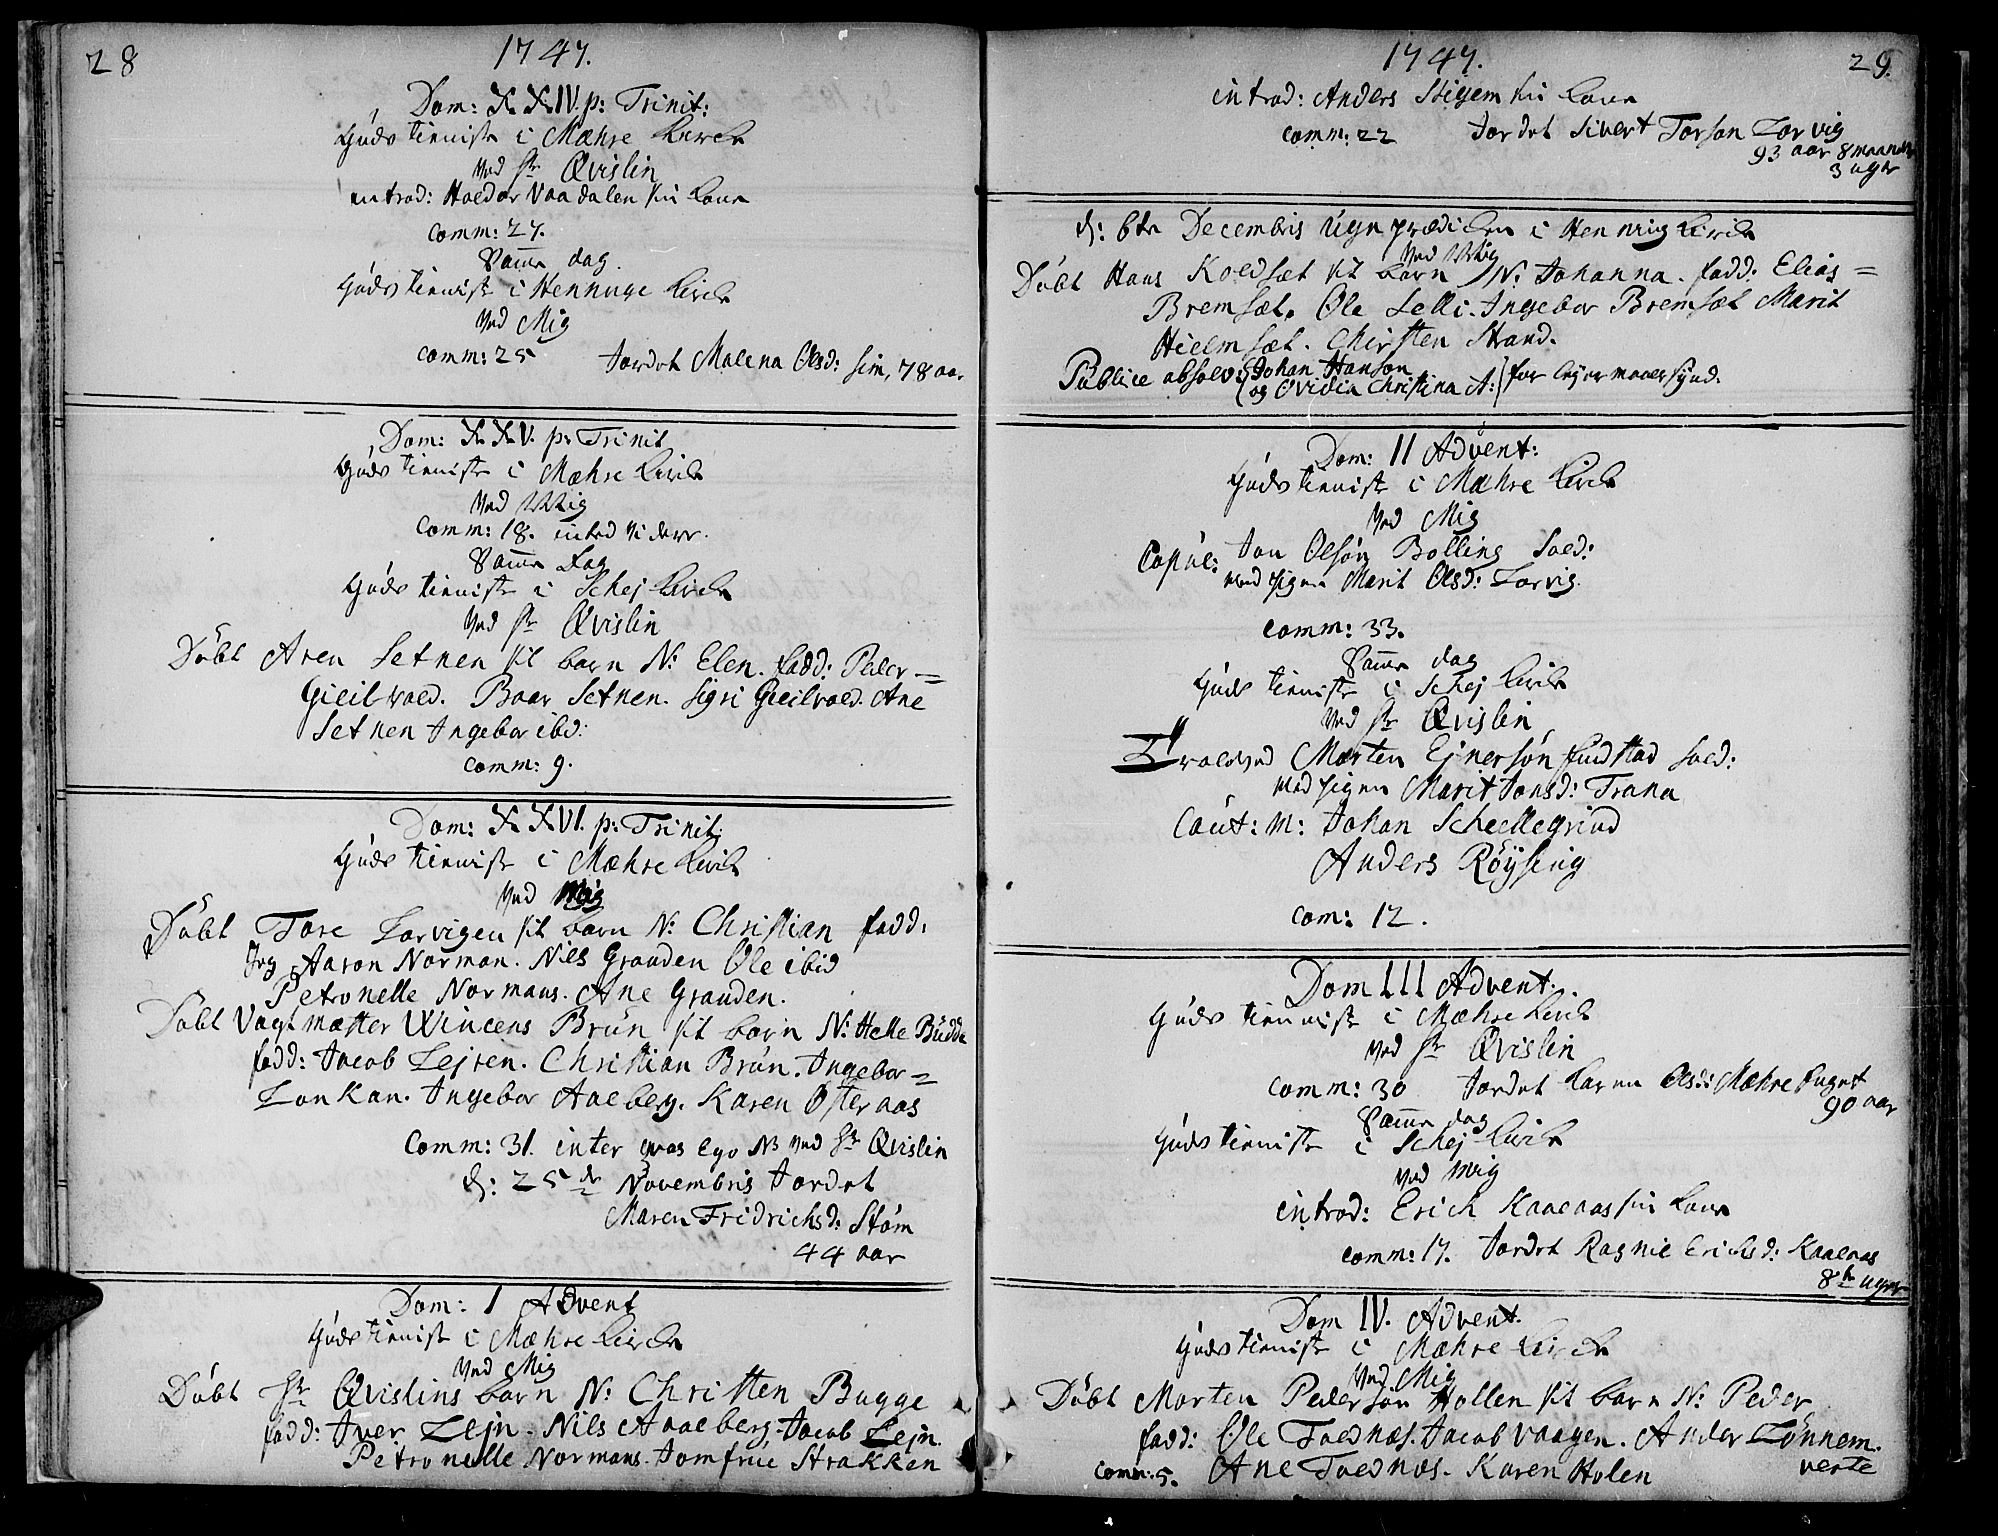 28
1747.
Dom: XXIV. p: Trinit:
Guds tieniste i Mæhre Kirche
ved Hr Qvislin
introd: Haldor Vaadalen sin Kone
comm: 27.
Samme dag.
Guds tieniste i Hennuge Kirche
ved Mig
comm: 25 Jordet Malena Olsd: 78 aar
Dom: XXV. p: Trinit
Guds tieniste i Mæhre Kirche
ved Mig
Comm: 18. inted videre.
Samme Dag
Guds tieniste i Schej Kirche
ved Hr Qvislin
Döbt Aren Setnen sit barn N: Elen. fadd: Peder =
Gieilvold. Baar Setnen. Sigri Gieilvold. Ane
Setnen Ingebor ibd:
comm: 9.
Dom: XXVI. p: Trinit:
Guds tieniste i Mæhre Kirche
ved Mig
Döbt Tore Lorvigen sit barn N: Christian fadd:
Jeg Aaron Norman. Nils Grauden Ole ibid
Petronelle Normans. Ane Grauden.
Döbt Vagtmæster Wincens Brun sit barn N: Helle Budde
fadd: Jacob Lejren. Christian Brun. Ingebor =
Lonkan. Ingebor Aaeberg. Karen Østeraas
Comm: 31. inter qvos ego NB ved Hr Qvislin
d: 25de Novembris Jordet
Maren Fridrichsd: Støm
44 aar
Dom: I Advent
Guds tieniste i Mæhre Kirche
ved Mig
Döbt Hr Qvislins barn N: Christen Bugge
fadd: Iver Lejn. Nils Aaeberg. Jacob Lejn.
Petronelle Normans. Jomfrue Strakken
1747.
29.
introd: Anders Stigem sin Kone
comm: 22 Jordet Sivert Torson Lorvig
93 aar 8 maaneder
3 uger
d: 6te Decembris Ugeprædiken i Henning Kirche
ved Mig
Döbt Hans Koldsæt sit barn N: Johanna. fadd: Elias =
Bremsæt. Ole Lelli. Ingebor Bremsæt Marit
Hielmsæt. Christen Strand.
Publice absolv: Johan Hanson
og Ovidia Christina A: for lejermaaels synd.
Dom: II Advent:
Guds tieniste i Mæhre Kirche
ved Mig
Copul: Jon Olsøn Bolling Sold:
med pigen Marit Olsd: Lorvig.
comm: 33.
Samme dag
Guds tieniste i Schej Kirche
ved Hr Qvislin
Troloved Morten Ejnersøn Sundstad Sold:
med pigen Marit Jonsd: Trana
Caut: m: Johan Scheellegrind
Anders Röysing
com: 12.
Dom III Advent.
Guds tieniste i Mæhre Kirche
ved Hr Qvislin
comm: 30 Jordet Karen Olsd: Mæhre
90 aar
Samme dag
Guds tieniste i Schej Kirche
ved mig
introd: Erich Kaaeaas sin Kone
comm: 17. Jordet Ragnil Erichsd: Kaaeaas
8te uger
Dom IV. Advent.
Guds tieniste i Mæhre Kirche
ved Mig
Döbt Morten Pedersøn Hollen sit barn N: Peder
fadd: Ole Foednæs. Jacob Vaagen. Ander Lönnem.
comm: 5. Ane Foednæs. Karen Holen verte